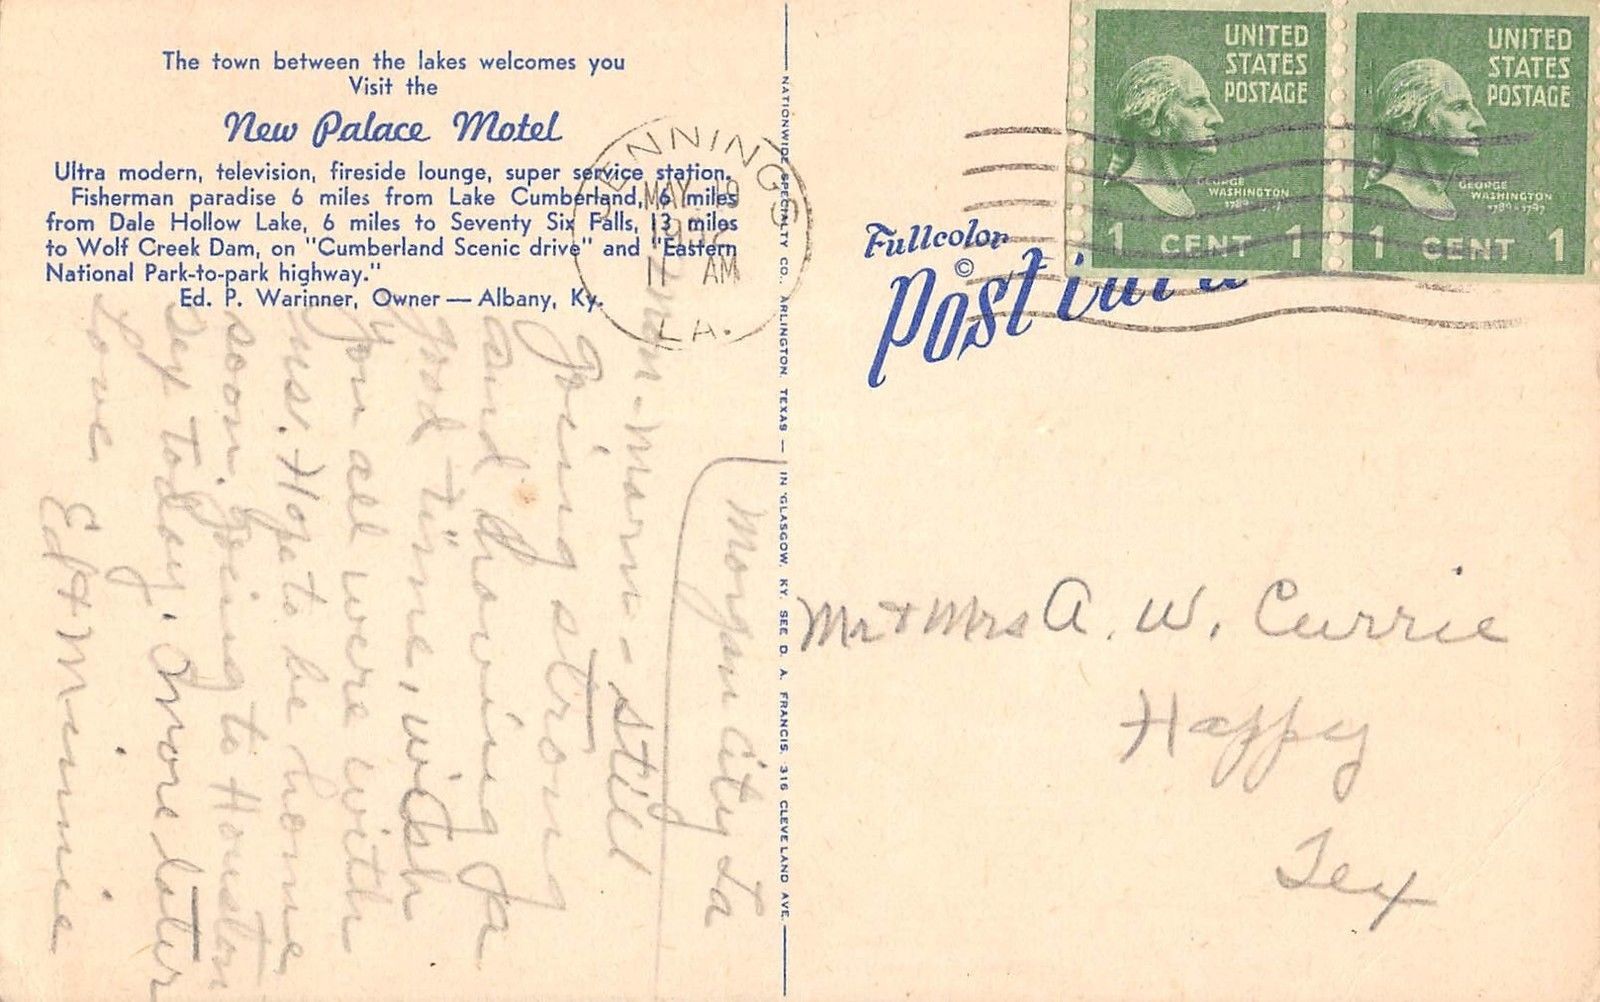 The town between the lakes welcomes you
Visit the
New Palace Motel
Ultra modern, television, fireside lounge, super service station.
Fisherman paradise 6 miles from Lake Cumberland, 6 miles
from Dale Hollow Lake, 6 miles to Seventy Six Falls, 13 miles
to Wolf Creek Dam, on "Cumberland Scenic drive" and "Eastern
National Park-to-park highway."
Ed. P. Warinner, Owner — Albany, Ky.
JENNINGS
MAY 19
11 AM
LA.
Morgan City La
Morn - still
Going strong
and having a
good time, wish
you all were with
us. Hope to be home
soon. Going to Houston
Tex today. More later
Love
Ed + Minnie
NATIONWIDE SPECIALTY CO., ARLINGTON, TEXAS — IN GLASGOW, KY. SEE D. A. FRANCIS, 316 CLEVELAND AVE.
UNITED
STATES
POSTAGE
GEORGE
WASHINGTON
1789-1797
1 CENT 1
UNITED
STATES
POSTAGE
GEORGE
WASHINGTON
1789-1797
1 CENT 1
Fullcolor
©
Postcard
Mr + Mrs A. W. Currie
Happy
Tex